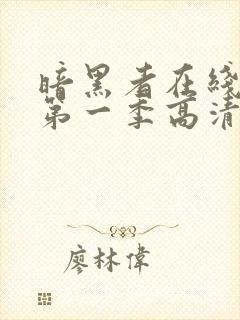 暗黑者在线
第一季高清
廖林偉